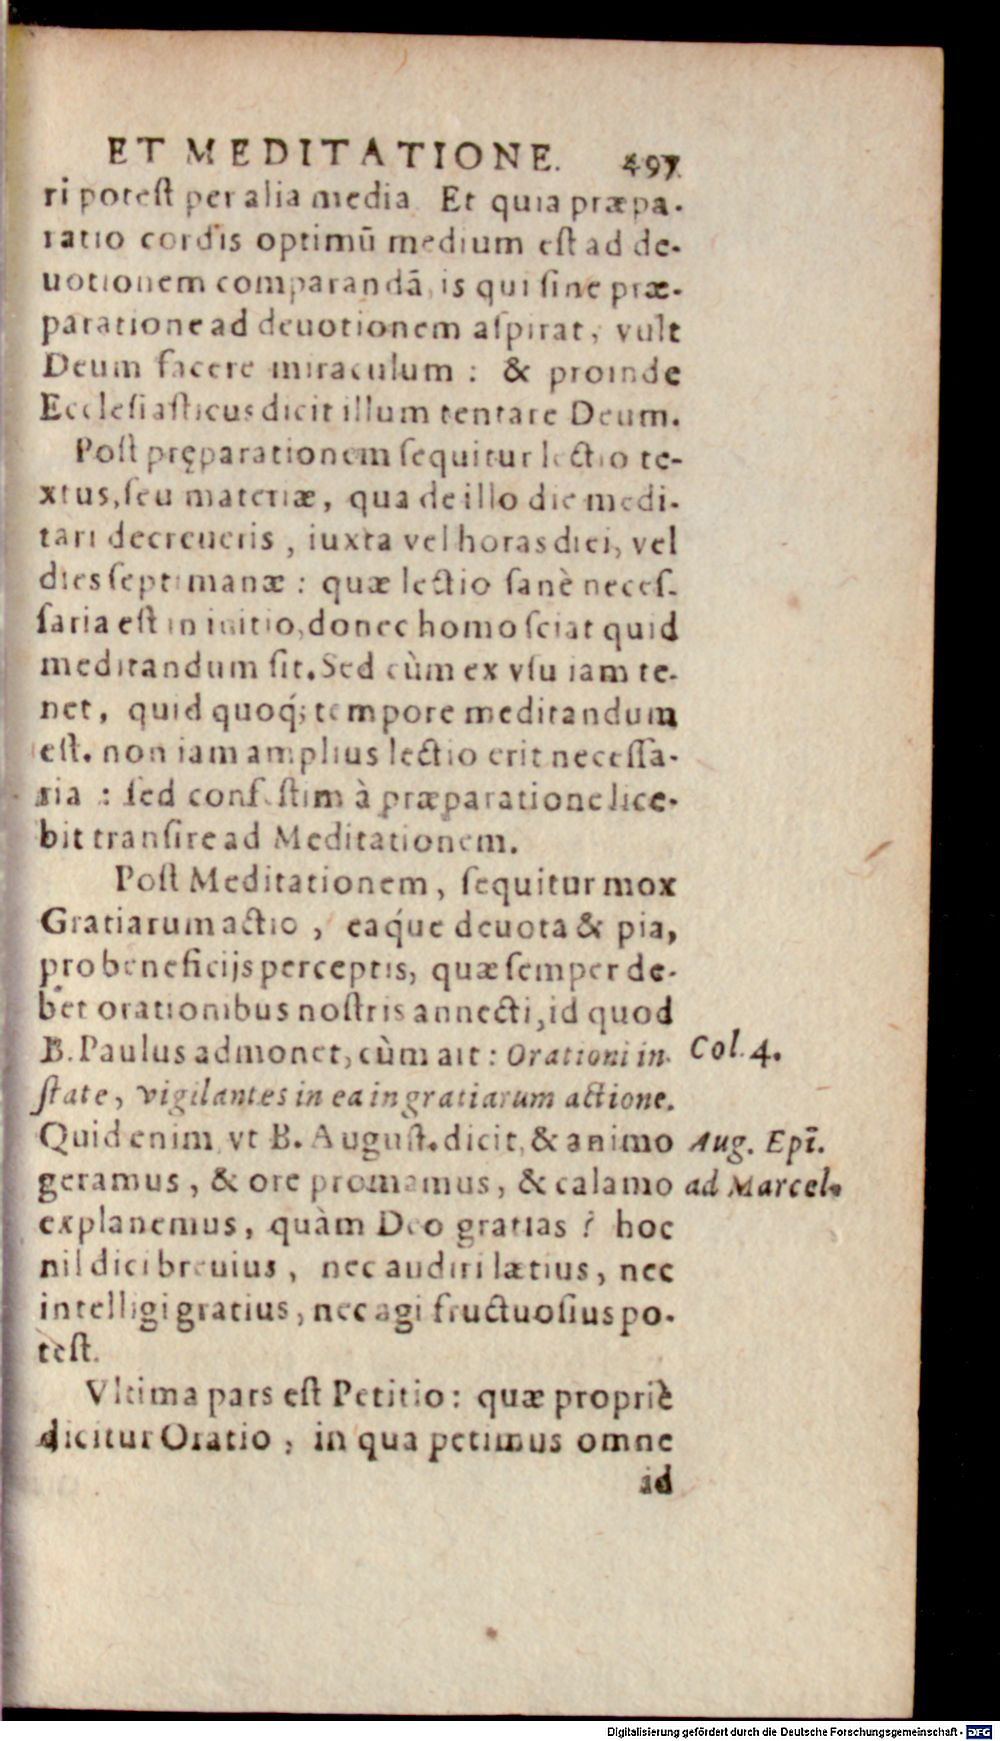 ET MEDITATIONE. 497.
ri poteſt per alia media. Et quia præpa-
ratio cordis optimū medium eſt ad de-
uotionem comparandā, is qui ſine præ-
paratione ad deuotionem aſpirat, vult
Deum facere miraculum : & proinde
Eccleſiaſticus dicit illum tentare Deum.
Poſt pręparationem ſequitur lectio te-
xtus, ſeu materiæ, qua de illo die medi-
tari decreueris, iuxta vel horas diei, vel
dies ſeptimanæ : quæ lectio ſanè neceſ-
ſaria eſt in initio, donec homo ſciat quid
meditandum ſit. Sed cùm ex vſu iam te-
net, quid quoq́; tempore meditandum
eſt. non iam amplius lectio erit neceſſa-
ria : ſed confeſtim à præparatione lice-
bit tranſire ad Meditationem.
Poſt Meditationem, ſequitur mox
Gratiarum actio, eaq́ue deuota & pia,
pro beneficijs perceptis, quæ ſemper de-
bet orationibus noſtris annecti, id quod
B. Paulus admonet, cùm ait : Orationi in- Col. 4.
ſtate, vigilantes in ea in gratiarum actione.
Quid enim, vt B. Auguſt. dicit, & animo Aug. Epī.
geramus, & ore promamus, & calamo ad Marcel.
explanemus, quàm Deo gratias ? hoc
nil dici breuius, nec audiri lætius, nec
intelligi gratius, nec agi fructuoſius po-
teſt.
Vltima pars eſt Petitio : quæ propriè
dicitur Oratio, in qua petimus omne
id
Digitalisierung gefördert durch die Deutsche Forschungsgemeinschaft - DFG